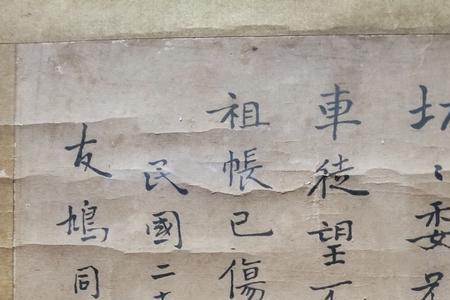 委
車徒望不
祖帳已傷
民國二
友鳩同